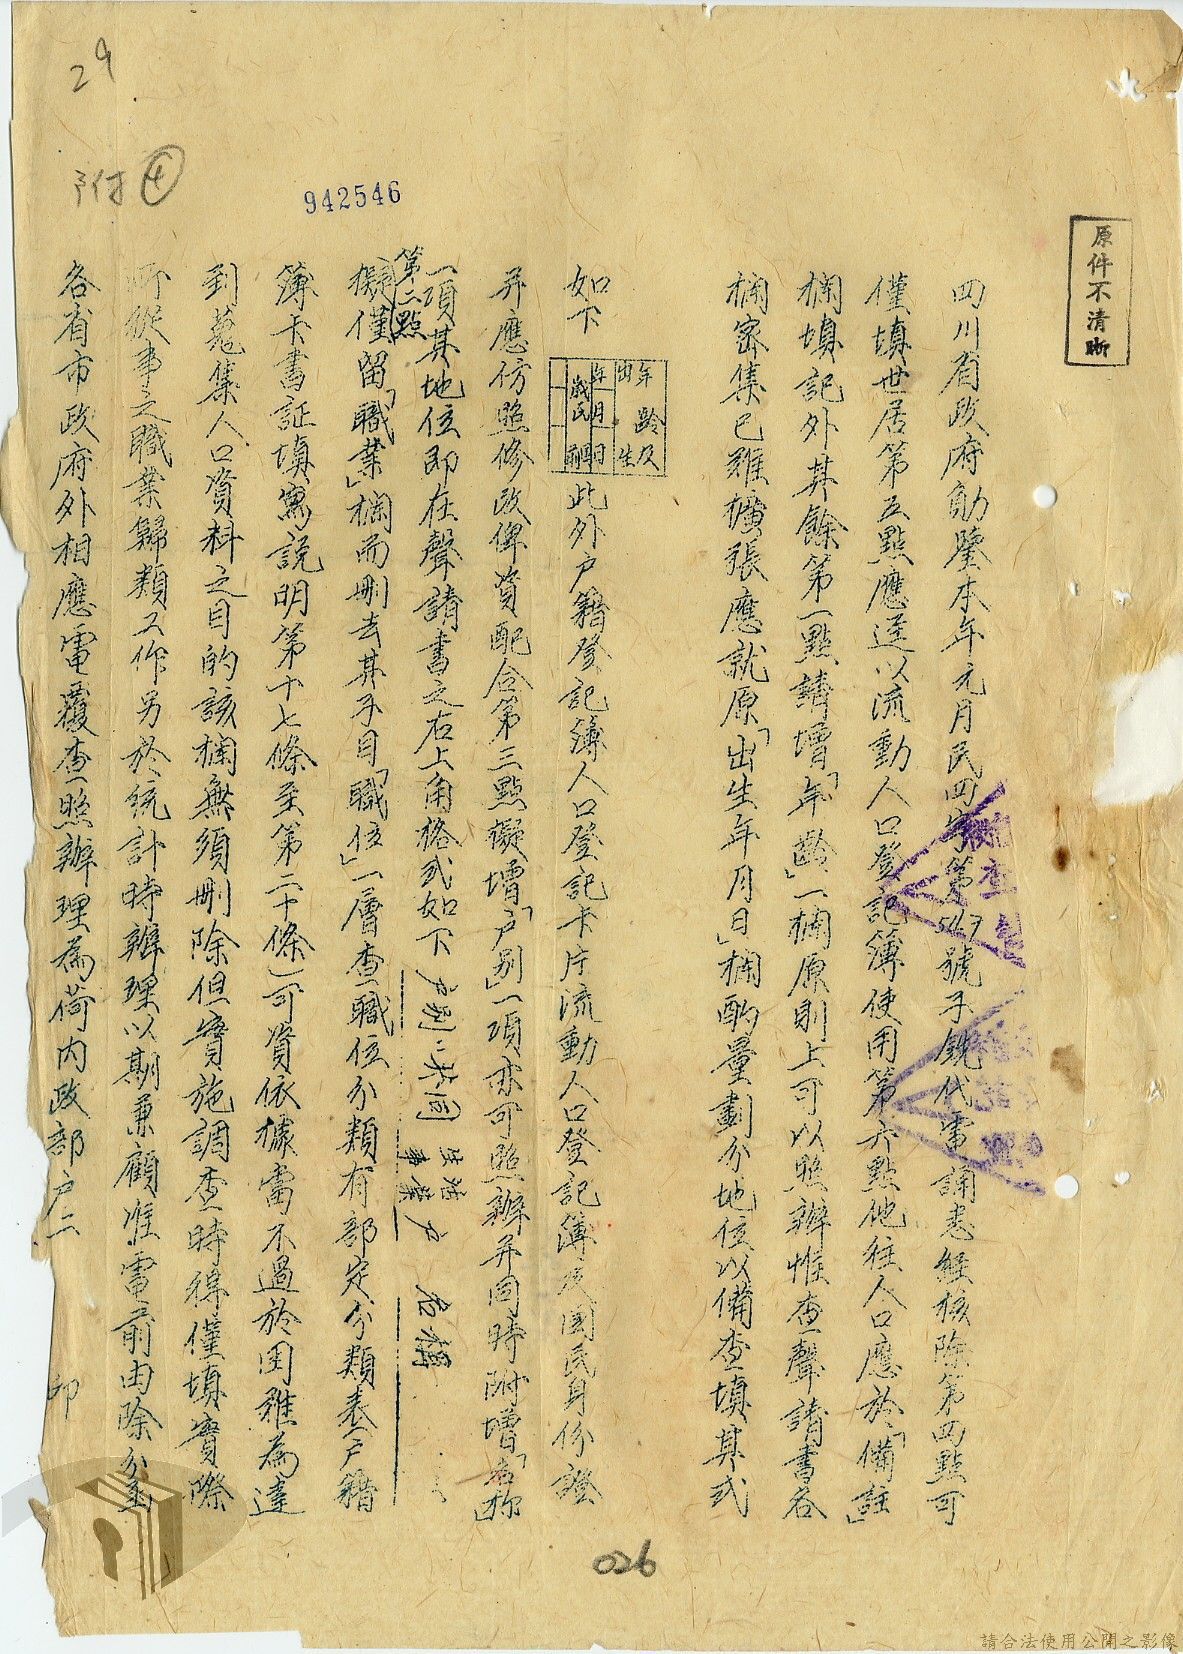 29
附④
942546
原件不清晰
四川省政府勛鑒本年元月民四字第547號子銑代電誦悉經核除第四點可
僅填世居第五點應逕以流動人口登記簿使用第六點他往人口應於「備註」
欄填記外其餘第一點請增「年齡」一欄原則上可以照辦惟查聲請書各
欄密集已難擴張應就原「出生年月日」欄酌量劃分地位以備查填其式
如下
年齡及
出生
年月日
歲民國
前
此外戶籍登記簿人口登記卡片流動人口登記簿及國民身份證
并應仿照修改俾資配合第三點擬增「戶別」一項亦可照辦并同時附增「名称」
一項其地位即在聲請書之右上角格式如下
戶別
共同
事業戶
名稱
第二點
擬僅留「職業」欄而刪去其子目「職位」一層查職位分類有部定分類表戶籍
簿卡書証填寫說明第十七條至第二十條)可資依據當不過於困難為達
到蒐集人口資料之目的該欄無須刪除但實施調查時得僅填實際
所從事之職業歸類工作另於統計時辦理以期兼顧准電前由除分電
各省市政府外相應電覆查照辦理為荷內政部戶二
印
026
請合法使用公開之影像